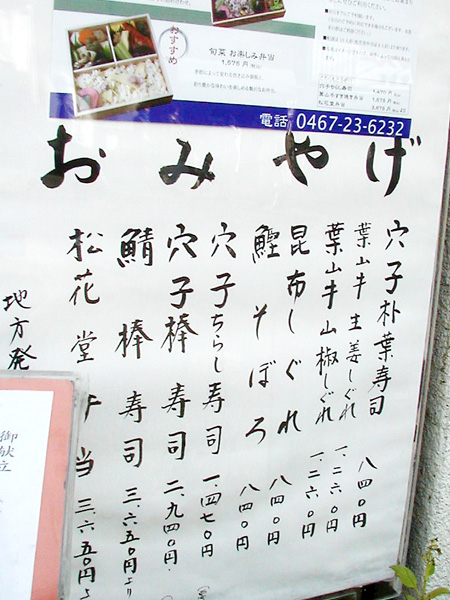 おすすめ
旬菜 お楽しみ弁当
1,675円
電話 0467-23-6232
おみやげ
穴子朴葉寿司 八四〇円
葉山牛 生姜しぐれ 一、二六〇円
葉山牛 山椒しぐれ 一、二六〇円
昆布しぐれ 八四〇円
鰹そぼろ 八四〇円
穴子ちらし寿司 一、四七〇円
穴子棒寿司 二、九四〇円
鯖棒寿司 三、六五〇円より
松花堂弁当 三、六五〇円より
地方発
御献立